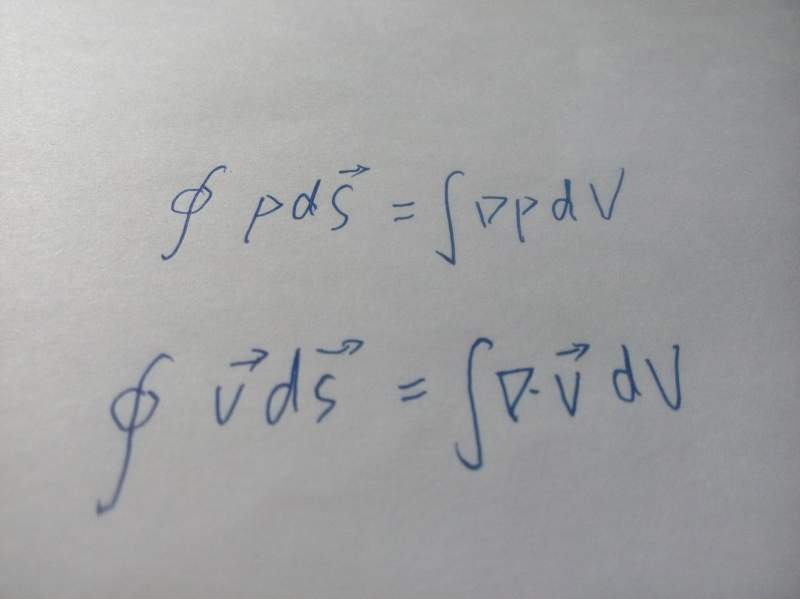 ∮ p d\vec{s} = ∫ ∇p dV
∮ \vec{v} d\vec{s} = ∫ ∇·\vec{v} dV